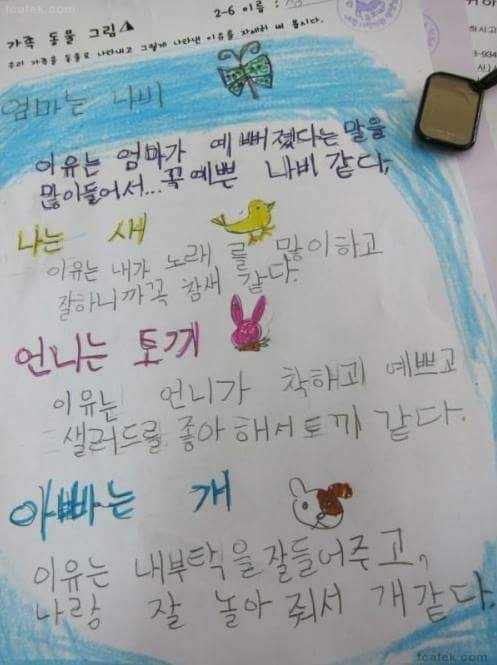 fcafek.com
2-6 이름 :
가족 동물 그림
우리 가족을 동물로 나타내고 그렇게 나타낸 이유를 자세히 써 봅시다.
엄마는 나비
이유는 엄마가 예뻐졌다는 말을
많이들어서...꼭 예쁜 나비 같다.
나는 새
이유는 내가 노래 를 많이하고
잘하니까꼭 참새 같다.
언니는 토끼
이유는 언니가 착하고 예쁘고
샐러드를 좋아해서 토끼 같다.
아빠는 개
이유는 내부탁을잘들어주고,
나랑 잘 놀아 줘서 개같다.
fcafek.com